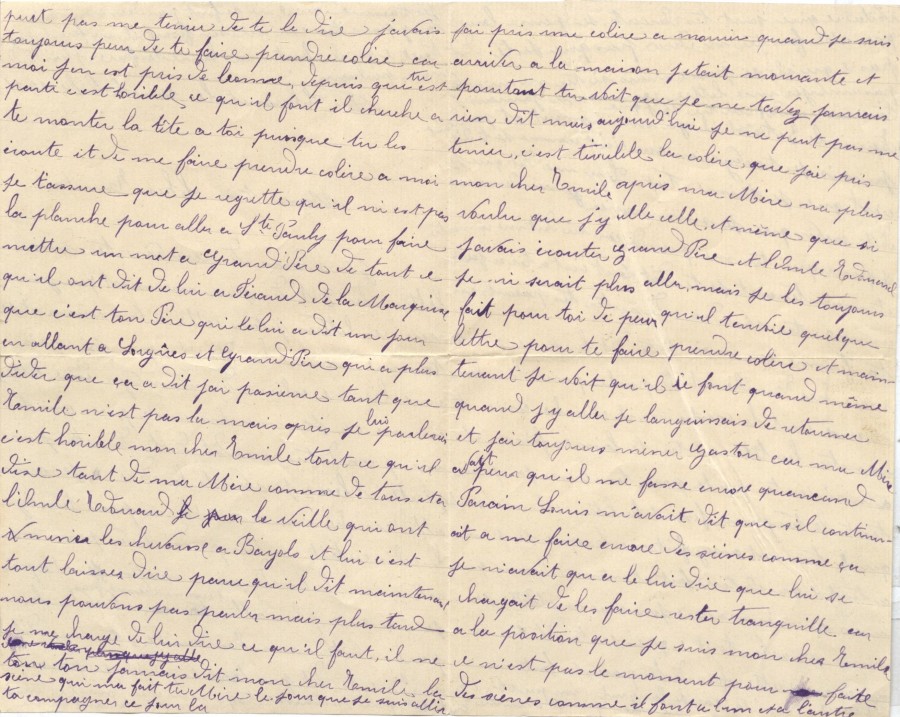 peut pas me tenier de te le dire javais
toujours peur de te faire prendre colère car
moi jen est pris de bonne, depuis que tu est
parti c'est horible, ce qu'il font il cherche a
te monter la tête a toi puisque tu les
écoute it de me faire prendre colère a moi
je t'assure que je regrette qu'il ni est pas
la planche pour aller a Ste Pauly pour faire
mettre un mot a Grand Père de tout ce
qu'il ont dit de lui a Féraud de la Mourguine
que c'est ton Père qui le lui a dit un jour
en allant a Lorgues et Grand Père qui a plus
d'ider que ça a dit jai pasieme tant que
Emile n'est pas la mais après je lui parlerai
c'est horible mon cher Emile tout ce qu'il
dise tant de ma Mère comme de tous et a
l'Oncle Edouard la veille qui ont
emmener les chevaux a Barjols et lui c'est
tout laisser dire parce qu'il dit maintenant
nous pouvons pas parler mais plus tard
je me charge de lui dire ce qu'il faut, il ne
ton jamais dit mon cher Emile la
siène qui ma fait ta Mère le jour que je suis aller
ta compagner ce jour la
jai pris une colère a mourir quand je suis
arriver a la maison j'etait mourante et
pourtant tu voit que je ne tavez jamais
rien dit mais aujourd'hui je ne peut pas me
tenier, c'est tirrible la colère que jai pris
mon cher Emile après ma Mère na plus
voulu que j'y alle celle, et même que si
javais écouter Grand Père et l'Oncle Edouard
je ni serait plus aller, mais je les toujours
fait pour toi de peur qu'il tenvoie quelque
lettre pour te faire prendre colère et main-
tenant je voit qu'il le font quand même
quand j'y aller je languissais de retourner
et jai toujours mener Gaston car ma Mère
avait peur qu'il me fasse encore quancand
Parain Louis m'avait dit que s'il continu-
ait a me faire encore des siènes comme ça
je n'avait qu a le lui dire que lui se
chargait de les faire rester tranquille car
a la position que je suis mon cher Emile
ce n'est pas le moment pour faire
des siènes comme il font a l'un et a l'autre